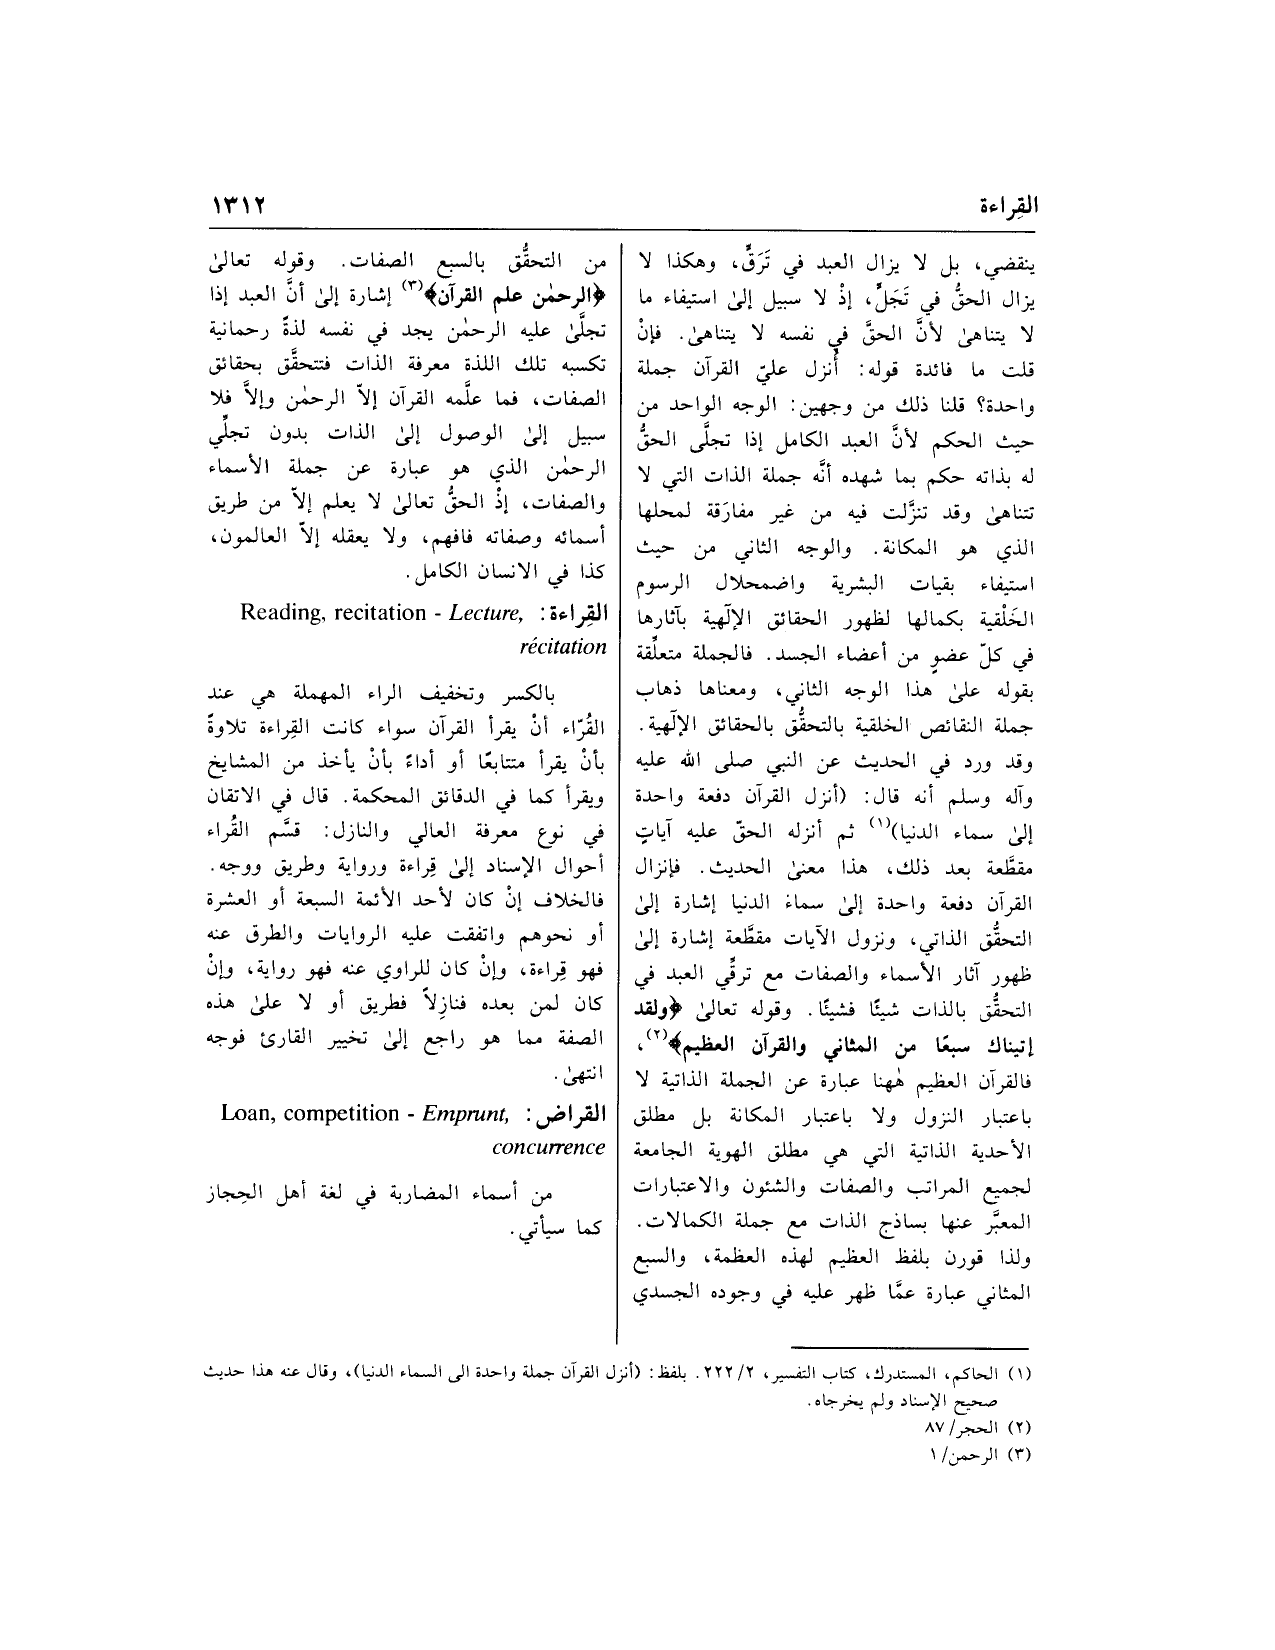 القِراءة ١٣١٢
ينقضي، بل لا يزال العبد في تَرَقٍّ، وهكذا لا
يزال الحقُّ في تَجَلٍّ، إذْ لا سبيل إلىٰ استيفاء ما
لا يتناهىٰ لأنَّ الحقَّ في نفسه لا يتناهىٰ. فإنْ
قلت ما فائدة قوله: أُنزل عليّ القرآن جملة
واحدة؟ قلنا ذلك من وجهين: الوجه الواحد من
حيث الحكم لأنَّ العبد الكامل إذا تجلَّى الحقُّ
له بذاته حكم بما شهده أنَّه جملة الذات التي لا
تتناهىٰ وقد تنزَّلت فيه من غير مفارَقة لمحلها
الذي هو المكانة. والوجه الثاني من حيث
استيفاء بقيات البشرية واضمحلال الرسوم
الخَلْقية بكمالها لظهور الحقائق الإلٓهية بآثارها
في كلّ عضوٍ من أعضاء الجسد. فالجملة متعلِّقة
بقوله علىٰ هذا الوجه الثاني، ومعناها ذهاب
جملة النقائص الخلقية بالتحقُّق بالحقائق الإلٓهية.
وقد ورد في الحديث عن النبي صلى الله عليه
وآله وسلم أنه قال: (أنزل القرآن دفعة واحدة
إلىٰ سماء الدنيا)(١) ثم أنزله الحقّ عليه آياتٍ
مقطَّعة بعد ذلك، هذا معنىٰ الحديث. فإنزال
القرآن دفعة واحدة إلىٰ سماء الدنيا إشارة إلىٰ
التحقُّق الذاتي، ونزول الآيات مقطَّعة إشارة إلىٰ
ظهور آثار الأسماء والصفات مع ترقِّي العبد في
التحقُّق بالذات شيئًا فشيئًا. وقوله تعالىٰ ﴿ولقد
اتيناك سبعًا من المثاني والقرآن العظيم﴾(٢)،
فالقرآن العظيم هٰهنا عبارة عن الجملة الذاتية لا
باعتبار النزول ولا باعتبار المكانة بل مطلق
الأحدية الذاتية التي هي مطلق الهوية الجامعة
لجميع المراتب والصفات والشئون والاعتبارات
المعبَّر عنها بساذج الذات مع جملة الكمالات.
ولذا قورن بلفظ العظيم لهذه العظمة، والسبع
المثاني عبارة عمَّا ظهر عليه في وجوده الجسدي
من التحقُّق بالسبع الصفات. وقوله تعالىٰ
﴿الرحمٰن علم القرآن﴾(٣) إشارة إلىٰ أنَّ العبد إذا
تجلَّىٰ عليه الرحمٰن يجد في نفسه لذةً رحمانية
تكسبه تلك اللذة معرفة الذات فتتحقَّق بحقائق
الصفات، فما علَّمه القرآن إلاّ الرحمٰن وإلاَّ فلا
سبيل إلىٰ الوصول إلىٰ الذات بدون تجلِّي
الرحمٰن الذي هو عبارة عن جملة الأسماء
والصفات، إذْ الحقُّ تعالىٰ لا يعلم إلاّ من طريق
أسمائه وصفاته فافهم، ولا يعقله إلاّ العالمون،
كذا في الانسان الكامل.
القِراءة: Reading, recitation - Lecture,
récitation
بالكسر وتخفيف الراء المهملة هي عند
القُرّاء أنْ يقرأ القرآن سواء كانت القِراءة تلاوةً
بأنْ يقرأ متتابعًا أو أداءً بأنْ يأخذ من المشايخ
ويقرأ كما في الدقائق المحكمة. قال في الاتقان
في نوع معرفة العالي والنازل: قسَّم القُراء
أحوال الإسناد إلىٰ قِراءة ورواية وطريق ووجه.
فالخلاف إنْ كان لأحد الأئمة السبعة أو العشرة
أو نحوهم واتفقت عليه الروايات والطرق عنه
فهو قِراءة، وإنْ كان للراوي عنه فهو رواية، وإنْ
كان لمن بعده فنازِلاً فطريق أو لا علىٰ هذه
الصفة مما هو راجع إلىٰ تخيير القارئ فوجه
انتهىٰ.
القراض: Loan, competition - Emprunt,
concurrence
من أسماء المضاربة في لغة أهل الحِجاز
كما سيأتي.
(١) الحاكم، المستدرك، كتاب التفسير، ٢/ ٢٢٢. بلفظ: (أنزل القرآن جملة واحدة الى السماء الدنيا)، وقال عنه هذا حديث
صحيح الإسناد ولم يخرجاه.
(٢) الحجر/ ٨٧
(٣) الرحمن/ ١